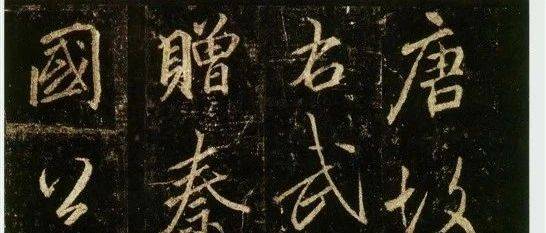 唐故
右武
贈秦
國公